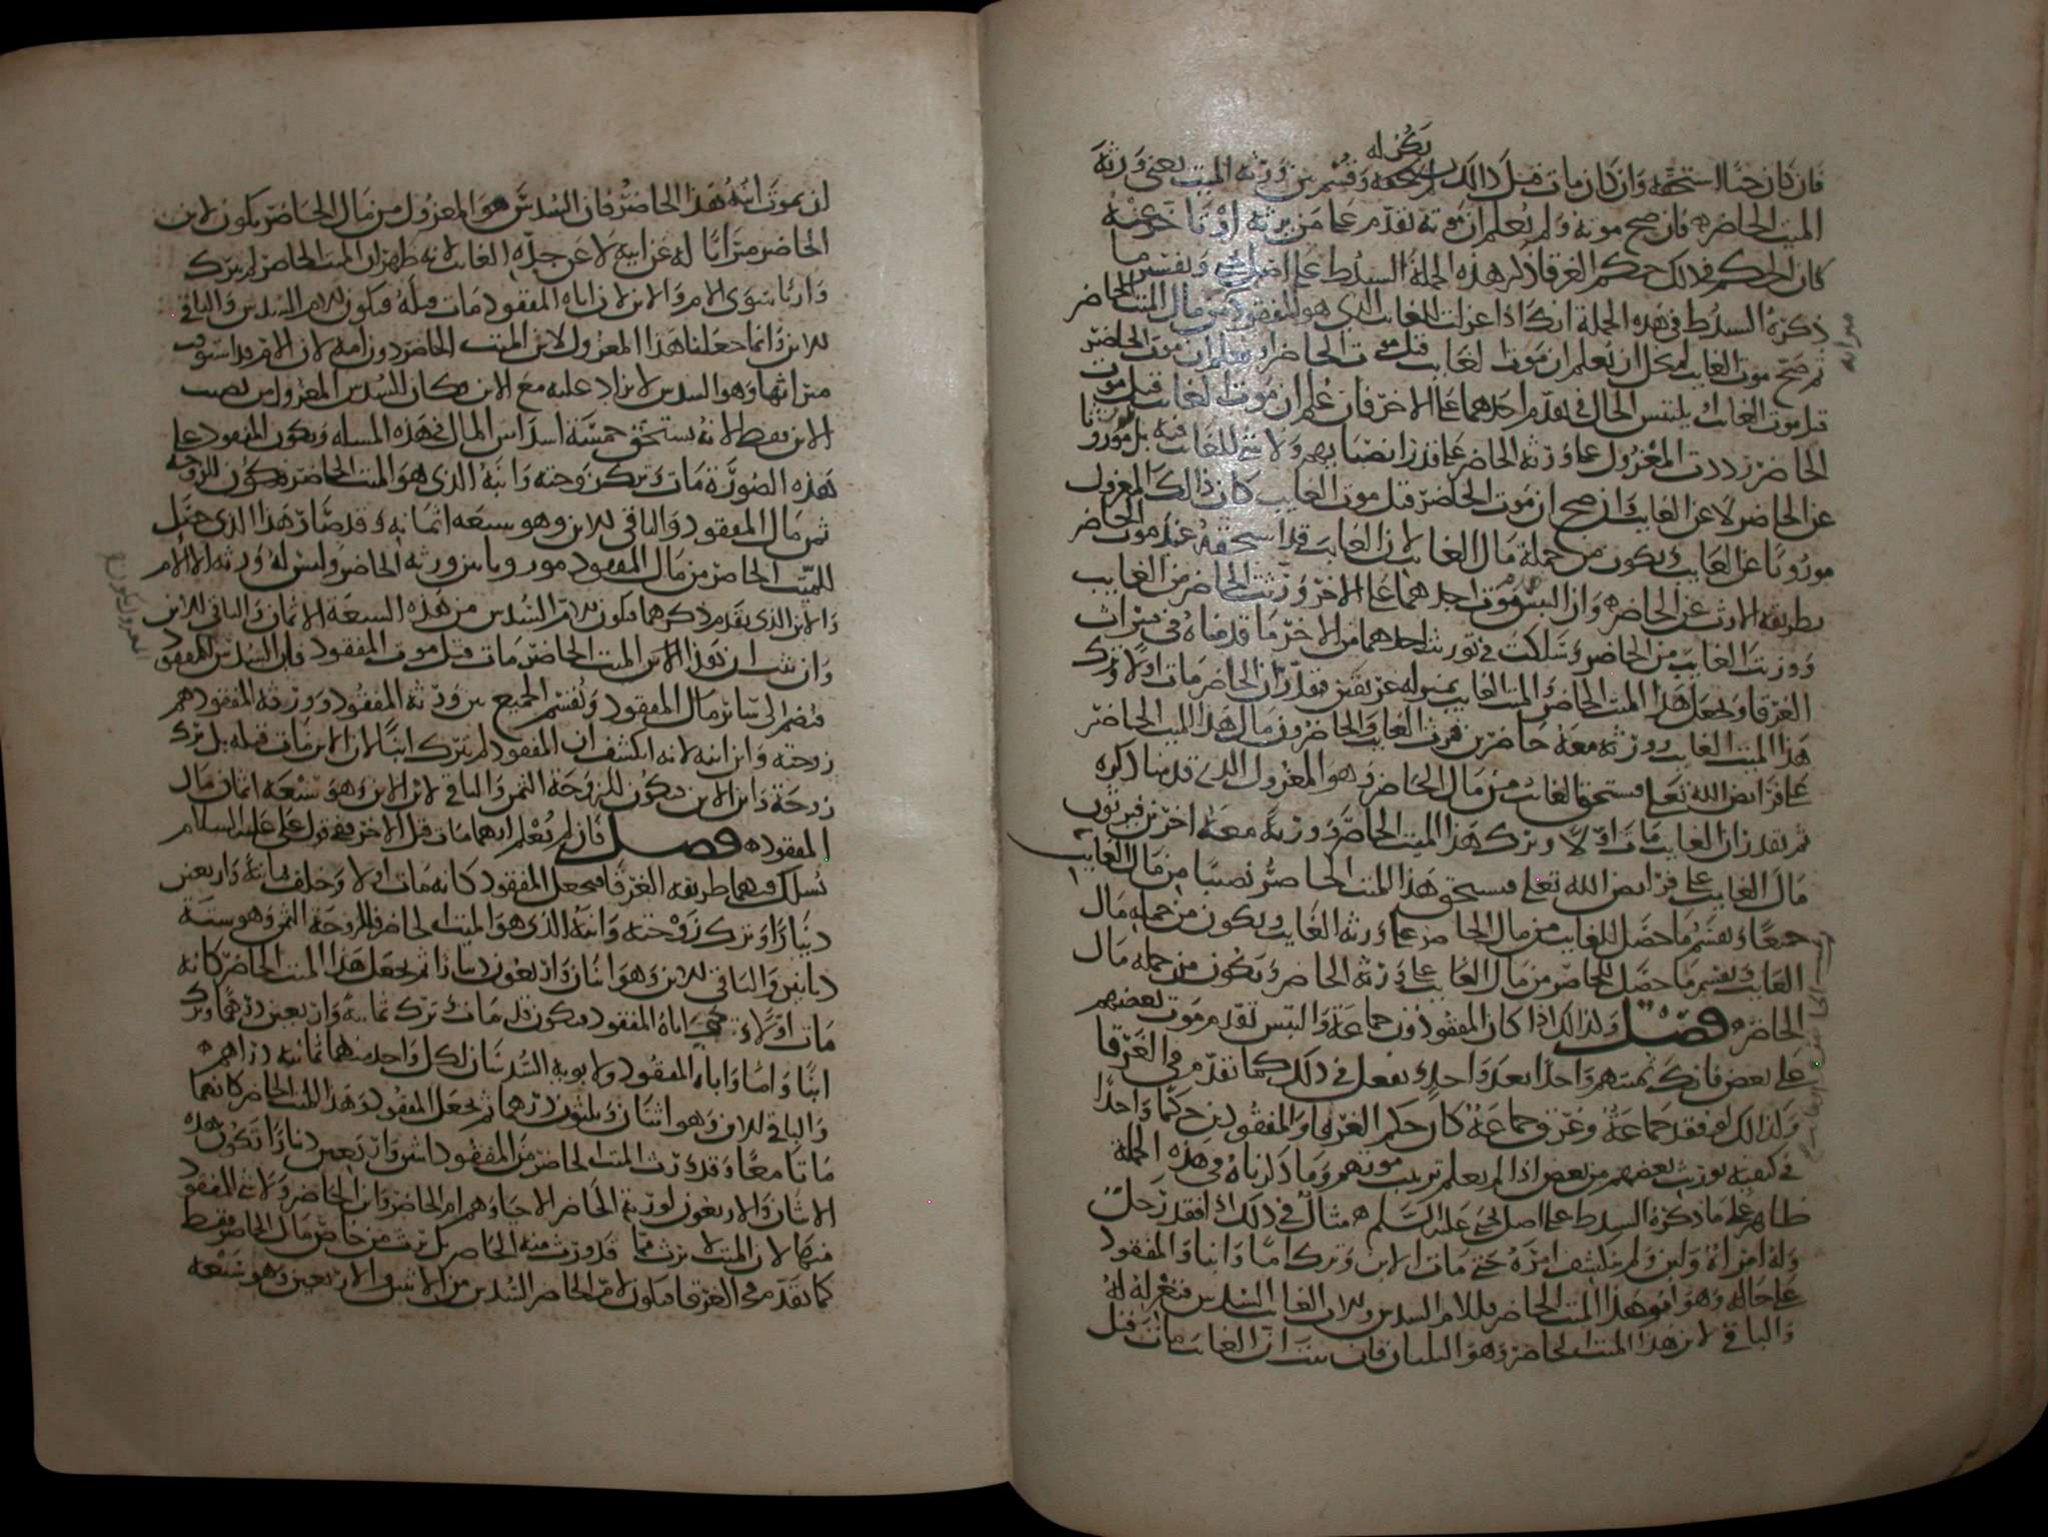 فان كان حيا استحقه وان كان مات قبل ذالك لم يستحقه وقسم بين ورثة الميت يعني ورثة
يكن له
الميت الحاضر فان صح موته ولم يعلم ان موته تقدم على من يرثه او تاخر عنه
كان الحكم في ذلك حكم الغرقا ذكر هذه الجملة السيد ط على اصل يحيى وتفسير ما
ذكره السيد ط في هذه الجملة انك اذا عزلت للغايب الذي هو المفقود من مال الميت الحاضر
ميراثه
ثم صح موت الغايب لم يخل ان يعلم ان موت الغايب قبل موت الحاضر او يعلم ان موت الحاضر
قبل موت الغايب او يلتبس الحال في تقدم احدهما على الاخر فان علم ان موت الغايب قبل موت
الحاضر رددت المعزول على ورثة الحاضر على قدر انصبايهم ولا شي للغايب فيه بل موروثا
عن الحاضر لا عن الغايب وان صح ان موت الحاضر قبل موت الغايب كان ذالك المعزول
موروثا عن الغايب ويكون من جملة مال الغايب لان الغايب قد استحقه عند موت الحاضر
بطريقة الارث عن الحاضر وان التبس موت احدهما على الاخر ورثت الحاضر من الغايب
وورثت الغايب من الحاضر وسلكت في توريث احدهما من الاخر ما قدمناه في ميراث
الغرقا وتجعل هذا الميت الحاضر والميت الغايب بمنزله غريقين فتقدر ان الحاضر مات اولا وترك
هذا الميت الغايب وورثة معه حاضرين فيرث الغايب والحاضرون مال هذا الميت الحاضر
على فرايض الله تعلى فيستحق الغايب من مال الحاضر وهو المعزول الذي قدمنا ذكره
ثم تقدر ان الغايب مات اولا وترك هذا الميت الحاضر وورثة معه اخرين فيرثون
مال الغايب على فرايض الله تعلى فيستحق هذا الميت الحاضر نصيبا من مال الغايب
جميعا وتقسم ما حصل للغايب من مال الحاضر على ورثة الغايب ويكون من جملة مال
الغايب وتقسم ما حصل للحاضر من مال الغايب على ورثة الحاضر ويكون من جملة مال
الحاضر فصل وكذالك اذا كان المفقودون جماعة والتبس تقدم موت بعضهم
على بعض فانك تميتهم واحدا بعد واحد وتفعل في ذلك كما تقدم في الغرقا
وكذالك لو فقد جماعة وغرق جماعة كان حكم الغرقى والمفقودين حكما واحدا
في كيفية توريث بعضهم من بعض اذا لم يعلم ترتيب موتهم وما ذكرناه في هذه الجملة
ظاهر على ما ذكره السيد ط على اصل يحيى عليه السلم مثال في ذلك لو افتقد رجل
وله امراة وابن ولم ينكشف امره حتى مات الابن وترك اما وابنا والمفقود
على حاله وهو ابو هذا الميت الحاضر فللام السدس وللاب الغايب السدس فتعزله له
والباقي لابن هذا الميت الحاضر وهو الثلثان فان بينت ان الغايب مات قبل
ان يموت ابنه هذا الحاضر فان السدس هو المعزول من مال الحاضر يكون لابن
الحاضر ميراثا له عن ابيه لا عن جده الغايب لانه ظهر ان الميت الحاضر لم يترك
وارثا سوى الام والابن لان اباه المفقود مات قبله فيكون للام السدس والباقي
للابن وانما جعلنا هذا المعزول لابن الميت الحاضر دون امه لان الام قد استوفت
ميراثها وهو السدس لا تزاد عليه مع الابن فكان السدس المعزول من نصيب
الابن فقط لانه يستحق خمسة اسداس المال في هذه المسالة ويكون المفقود على
هذه الصورة مات وترك زوجته وابنه الذي هو الميت الحاضر فيكون للزوجة
ثمن مال المفقود والباقي للابن وهو سبعة اثمانه وقد صار هذا الذي حصل
للميت الحاضر من مال المفقود موروثا بين ورثة الحاضر وليس له ورثة الا الام
والابن الذي تقدم ذكرهما فيكون للام السدس من هذه السبعة الاثمان والباقي للابن
وان تبين ان الابن الميت الحاضر مات قبل موت المفقود فان السدس المفقود
فيضم الى ساير مال المفقود وتقسم الجميع بين ورثة المفقود وورثة المفقود هم
زوجته وابن ابنه لانه انكشف ان المفقود لم يترك ابنا لان الابن مات قبله بل ترك
زوجة وابن الابن فيكون للزوجة الثمن والباقي لابن الابن وهو سبعة اثمان مال
المفقود فصل فان لم يعلم ايهما مات قبل الاخر فعلى قول علي عليه السلام
تسلك فيهما طريقة الغرقا فيجعل المفقود كانه مات اولا وخلف ثمانية واربعين
دينارا وترك زوجته وابنه الذي هو الميت الحاضر فللزوجة الثمن وهو ستة
دنانير والباقي للابن وهو اثنان واربعون دينارا ثم يجعل هذا الميت الحاضر كانه
مات اولا وترك اباه المفقود فيكون قد مات وترك ثمانية واربعين درهما وترك
ابنا واما واباه المفقود ولابويه السدسان لكل واحد منهما ثمانية دراهم
والباقي للابن وهو اثنان وثلثون درهما ثم يجعل المفقود وهذا الميت الحاضر كانهما
ماتا معا وقد ورث الميت الحاضر من المفقود اثنين واربعين دينارا تكون هذه
الاثنان والاربعون لورثة الحاضر الاحيا وهم ام الحاضر وابن الحاضر ولا شي للمفقود
فيها لان الميت لا يرث مما قد ورث منه الحاضر بل يرث من خاص مال الحاضر فقط
كما تقدم في الغرقا فيكون لام الحاضر السدس من الاثنين والاربعين وهو سبعة